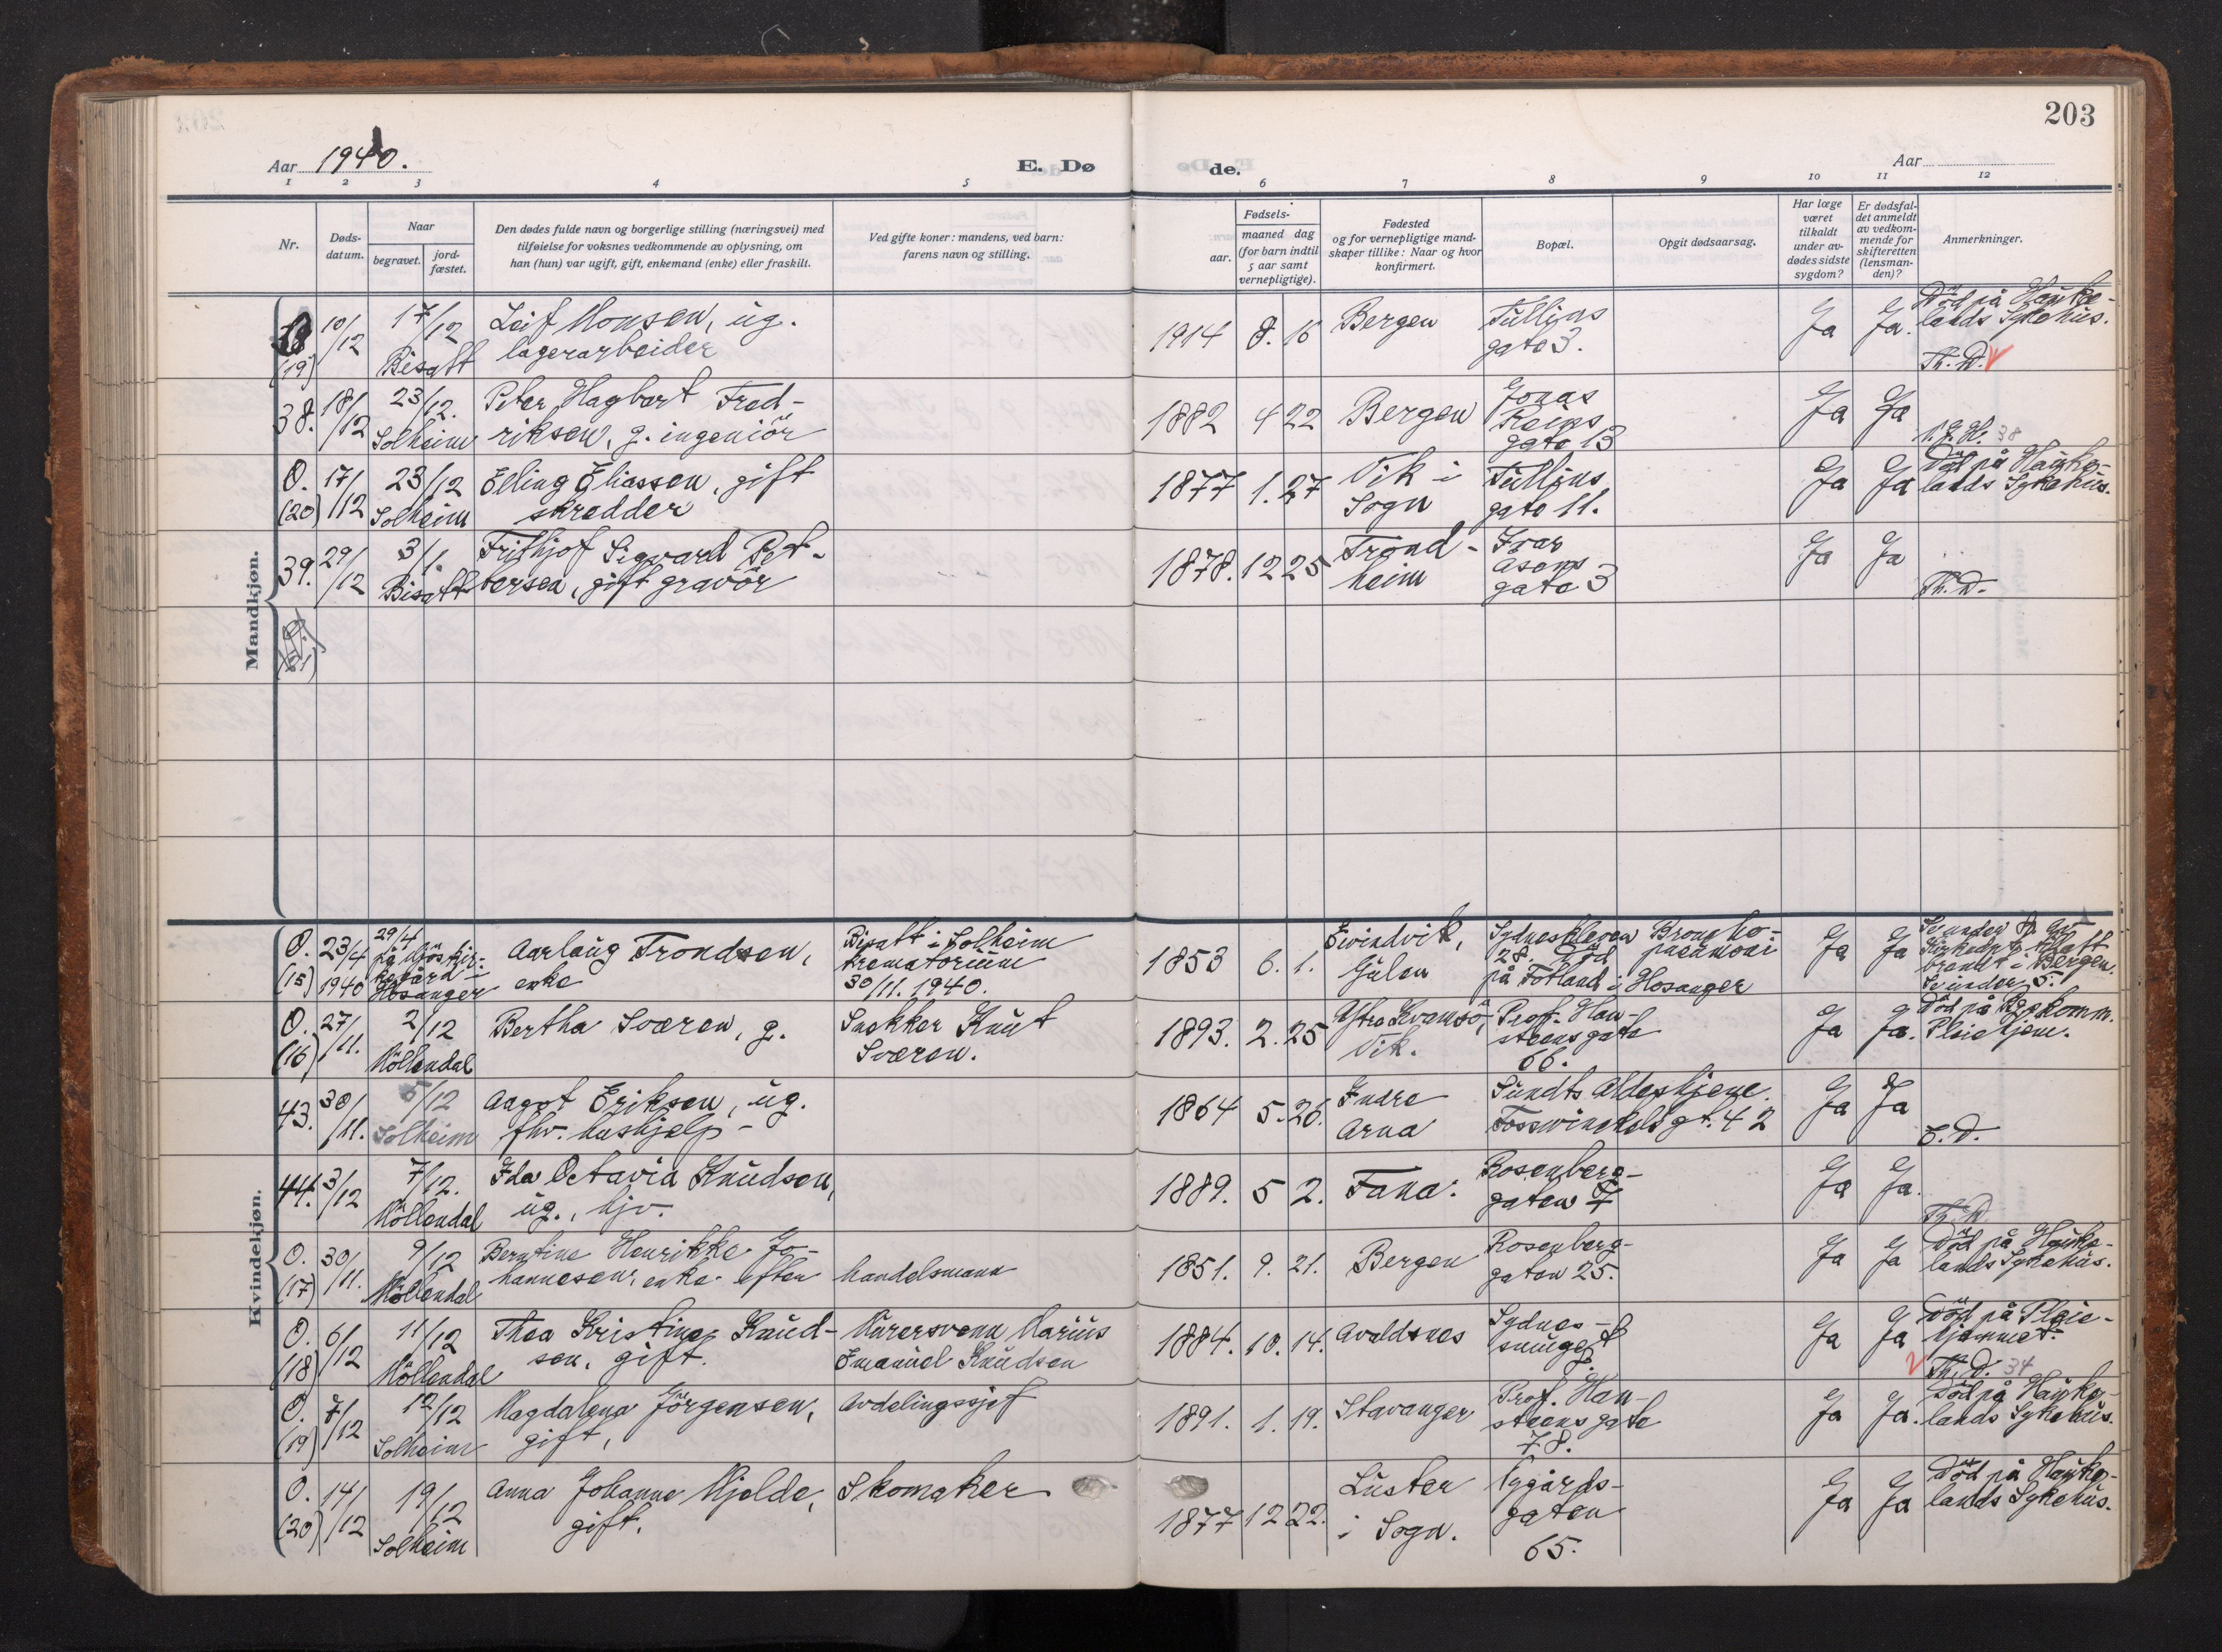 203
Aar 1940.
E. Dø
de.
Aar
1 2 3 4 5 6 7 8 9 10 11 12
Nr.
Døds-
datum.
Naar
begravet.
jord-
fæstet.
Den dødes fulde navn og borgerlige stilling (næringsvei) med
tilføielse for voksnes vedkommende av oplysning, om
han (hun) var ugift, gift, enkemand (enke) eller fraskilt.
Ved gifte koner: mandens, ved barn:
farens navn og stilling.
Fødsels-
aar.
maaned dag
(for barn indtil
5 aar samt
vernepligtige).
Fødested
og for vernepligtige mand-
skaper tillike: Naar og hvor
konfirmert.
Bopæl.
Opgit dødsaarsag.
Har læge
været
tilkaldt
under av-
dødes sidste
sygdom?
Er dødsfal-
det anmeldt
av vedkom-
mende for
skifteretten
(lensman-
den)?
Anmerkninger.
Mandkjøn.
(19) 10/12 17/12 Bisatt
Leif Monsen, ug.
lagerarbeider
1914 8. 16 Bergen
Tullins
gate 3.
Ja Ja.
Död på Hauke-
lands Sykehus.
Th. D.
38. 18/12 23/12. Solheim
Peter Hagbart Fred-
riksen, g. ingeniör
1882 4 22 Bergen
Jonas
Reins
gate 13
Ja Ja
38
O. (20) 17/12 23/12 Solheim
Elling Eliassen, gift
skredder
1877 1. 27
Vik i
Sogn
Tullins
gate 11.
Ja Ja
Död på Hauke-
lands Sykehus.
39. 29/12 3/1. Bisatt
Frithjof Sigvard Pet-
tersen, gift gravör
1878. 12 25
Trond-
heim
Ivar
Asens
gate 3
Ja Ja
Th. D.
Kvindekjøn.
O. (15) 23/4 1940 29/4
på Mjös kir-
kegård i
Hosanger
Aarlaug Trondsen,
enke
Bisatt i Solheim
krematorium
30/11. 1940.
1853 6. 1.
Eivindvik,
Gulen
Sydneskleven
28. Död
på Fotland i Hosanger
Broncho-
pneumoni
Ja Ja
brendt i Bergen.
Se under 5.
O. (16) 27/11. 2/12 Möllendal
Bertha Sværen, g.
Snekker Knut
Sværen.
1893. 2. 25
Vik.
Prof. Han-
steens gate
66.
Ja Ja.
Död på Bgs komm.
Pleiehjem.
43. 30/11. 5/12 Solheim
Aagot Eriksen, ug.
fhv. hushjelp -
1864 5. 26.
Indre
Arna
Sundts Aldershjem.
Fosswinckels gt. 42
Ja Ja
E. D.
44. 3/12 7/12. Möllendal
Ida Octavia Knudsen,
ug., hjv.
1889. 5 2. Fana.
Rosenberg-
gaten 7
Ja Ja.
Th. D.
O. (17) 30/11. 9/12 Möllendal
Berntine Henrikke Jo-
hannesen, enke efter
handelsmann
1851. 9. 21. Bergen
Rosenberg-
gaten 25.
Ja Ja
Död på Hauke-
lands Sykehus.
O. (18) 6/12 11/12 Möllendal
Thea Kristine Knud-
sen, gift.
Murersvenn Marius
Emanuel Knudsen
1884. 10. 14. Avaldsnes
Sydnes-
smuget
Ja Ja
Död på Pleie-
hjemmet.
Th. D. 34
O. (19) 7/12 12/12 Solheim
Magdalena Jörgensen,
gift,
Avdelingssjef
1891. 1. 19. Stavanger
Prof. Han-
steens gate
78.
Ja Ja.
Död på Hauke-
lands Sykehus.
O. (20) 14/12 19/12 Solheim
Anna Johanne Mjelde,
gift.
Skomaker
1877 12 22.
Luster
i Sogn.
Nygårds-
gaten
65.
Ja Ja
Död på Hauke-
lands Sykehus.